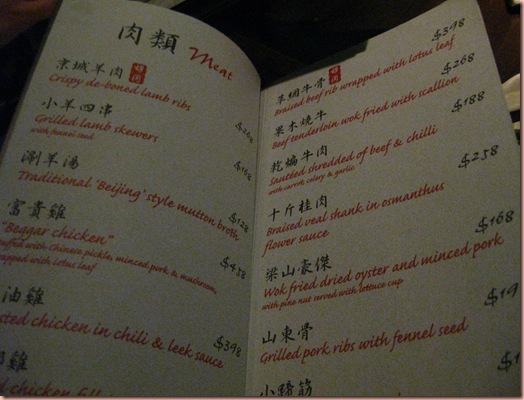 肉類 Meat
京城羊肉
Crispy de-boned lamb ribs
$268
小羊四串
Grilled lamb skewers
with fennel seed
$168
涮羊湯
Traditional 'Beijing' style mutton broth
$128
富貴雞
"Beggar chicken"
with Chinese pickle, minced pork & mushroom,
wrapped with lotus leaf
$458
油雞
chicken in chili & leek sauce
$398
雞
chicken
$398
羊綑牛骨
Braised beef rib wrapped with lotus leaf
$268
果木燒牛
Beef tenderloin wok fried with scallion
$188
乾煸牛肉
Sautéed shredded of beef & chilli
with carrot, celery & garlic
$258
十斤桂肉
Braised veal shank in osmanthus
flower sauce
$168
梁山豪傑
Wok fried dried oyster and minced pork
with pine nut served with lettuce cup
山東骨
Grilled pork ribs with fennel seed
小蹄筋